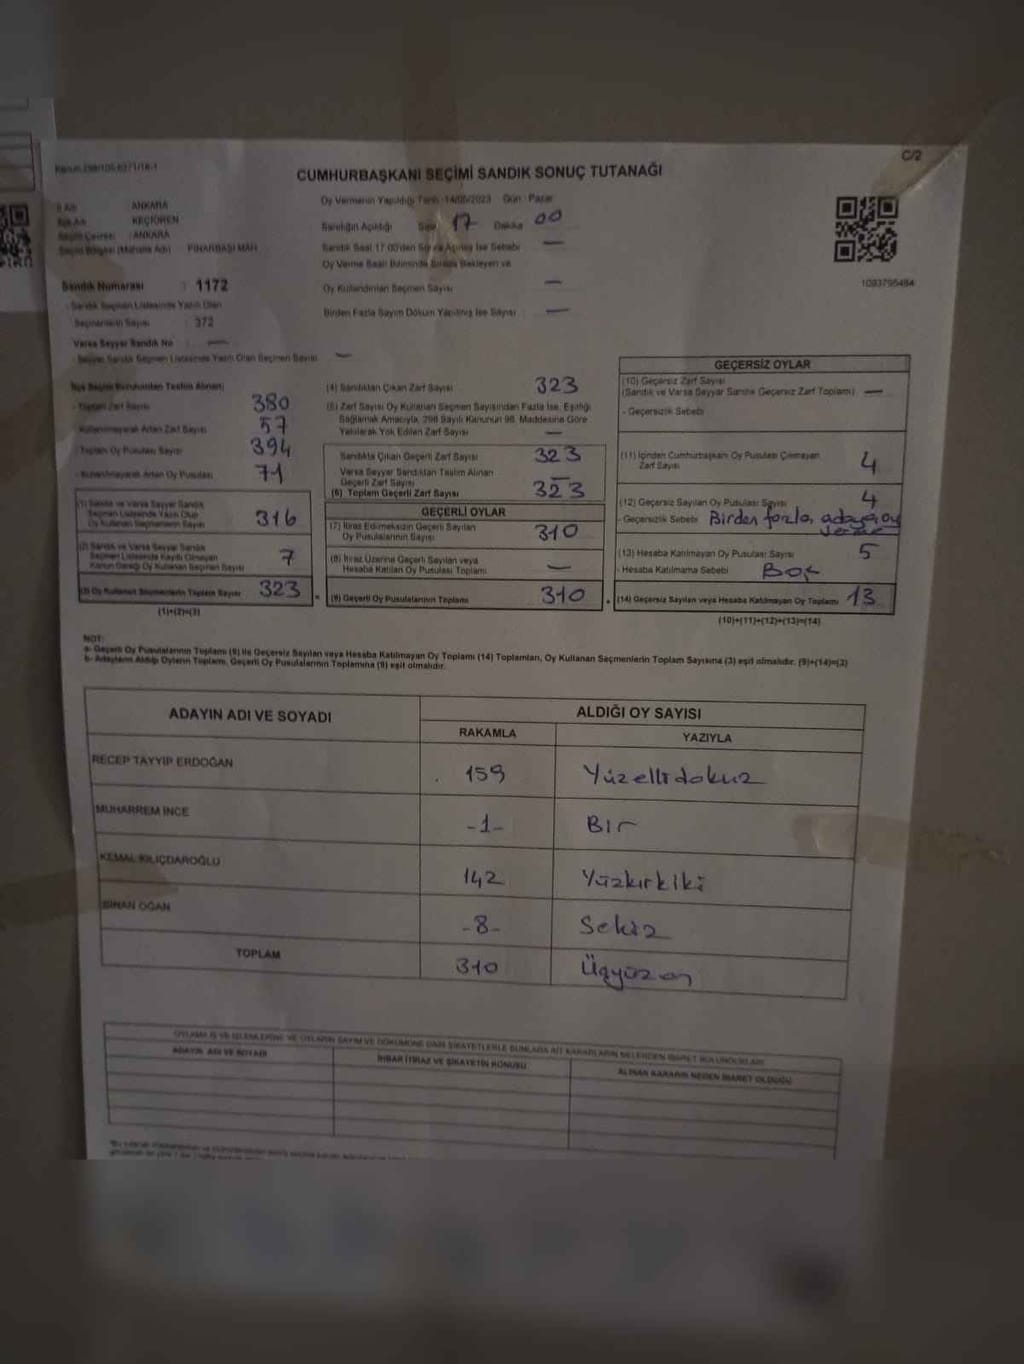 C/2
CUMHURBAŞKANI SEÇİMİ SANDIK SONUÇ TUTANAĞI
İl Adı : ANKARA
İlçe Adı : KEÇİÖREN
Seçim Çevresi : ANKARA
Seçim Bölgesi (Mahalle Adı) : PINARBAŞI MAH.
Sandık Numarası : 1172
- Sandık Seçmen Listesinde Yazılı Olan
Seçmenlerin Sayısı : 372
Varsa Seyyar Sandık No : —
- Seyyar Sandık Seçmen Listesinde Yazılı Olan Seçmen Sayısı : —
Oy Vermenin Yapıldığı Tarih :14/05/2023 Gün : Pazar
Sandığın Açıldığı Saat 17 Dakika 00
Sandık Saat 17:00'den Sonra Açılmış İse Sebebi —
Oy Verme Saati Bitiminde Sırada Bekleyen ve
Oy Kullandırılan Seçmen Sayısı —
Birden Fazla Sayım Döküm Yapılmış İse Sayısı : —
1093795484
İlçe Seçim Kurulundan Teslim Alınan;
- Toplam Zarf Sayısı 380
- Kullanılmayarak Artan Zarf Sayısı 57
- Toplam Oy Pusulası Sayısı 394
- Kullanılmayarak Artan Oy Pusulası 71
(1) Sandık ve Varsa Seyyar Sandık
Seçmen Listesinde Yazılı Olup
Oy Kullanan Seçmenlerin Sayısı 316
(2) Sandık ve Varsa Seyyar Sandık
Seçmen Listesinde Kayıtlı Olmayan
Kanun Gereği Oy Kullanan Seçmen Sayısı 7
(3) Oy Kullanan Seçmenlerin Toplam Sayısı 323
(1)+(2)=(3)
(4) Sandıktan Çıkan Zarf Sayısı 323
(5) Zarf Sayısı Oy Kullanan Seçmen Sayısından Fazla İse, Eşitliği
Sağlamak Amacıyla, 298 Sayılı Kanunun 98. Maddesine Göre
Yakılarak Yok Edilen Zarf Sayısı —
Sandıkta Çıkan Geçerli Zarf Sayısı 323
Varsa Seyyar Sandıktan Teslim Alınan
Geçerli Zarf Sayısı —
(6) Toplam Geçerli Zarf Sayısı 323
GEÇERLİ OYLAR
(7) İtiraz Edilmeksizin Geçerli Sayılan
Oy Pusulalarının Sayısı 310
(8) İtiraz Üzerine Geçerli Sayılan veya
Hesaba Katılan Oy Pusulası Toplamı —
(9) Geçerli Oy Pusulalarının Toplamı 310
GEÇERSİZ OYLAR
(10) Geçersiz Zarf Sayısı
(Sandık ve Varsa Seyyar Sandık Geçersiz Zarf Toplamı) —
- Geçersizlik Sebebi
(11) İçinden Cumhurbaşkanı Oy Pusulası Çıkmayan
Zarf Sayısı 4
(12) Geçersiz Sayılan Oy Pusulası Sayısı 4
- Geçersizlik Sebebi Birden fazla adaya oy
verme
(13) Hesaba Katılmayan Oy Pusulası Sayısı 5
- Hesaba Katılmama Sebebi Boş
(14) Geçersiz Sayılan veya Hesaba Katılmayan Oy Toplamı 13
(10)+(11)+(12)+(13)=(14)
NOT:
a- Geçerli Oy Pusulalarının Toplamı (9) ile Geçersiz Sayılan veya Hesaba Katılmayan Oy Toplamı (14) Toplamları, Oy Kullanan Seçmenlerin Toplam Sayısına (3) eşit olmalıdır. (9)+(14)=(3)
b- Adayların Aldığı Oyların Toplamı, Geçerli Oy Pusulalarının Toplamına (9) eşit olmalıdır.
ADAYIN ADI VE SOYADI ALDIĞI OY SAYISI
RAKAMLA YAZIYLA
RECEP TAYYİP ERDOĞAN 159 Yüzellidokuz
MUHARREM İNCE -1- Bir
KEMAL KILIÇDAROĞLU 142 Yüzkırkiki
SİNAN OĞAN -8- Sekiz
TOPLAM 310 Üçyüzon
ADAYIN ADI VE SOYADI İHBAR İTİRAZ VE ŞİKAYETİN KONUSU ALINAN KARARIN NEDEN İBARET OLDUĞU